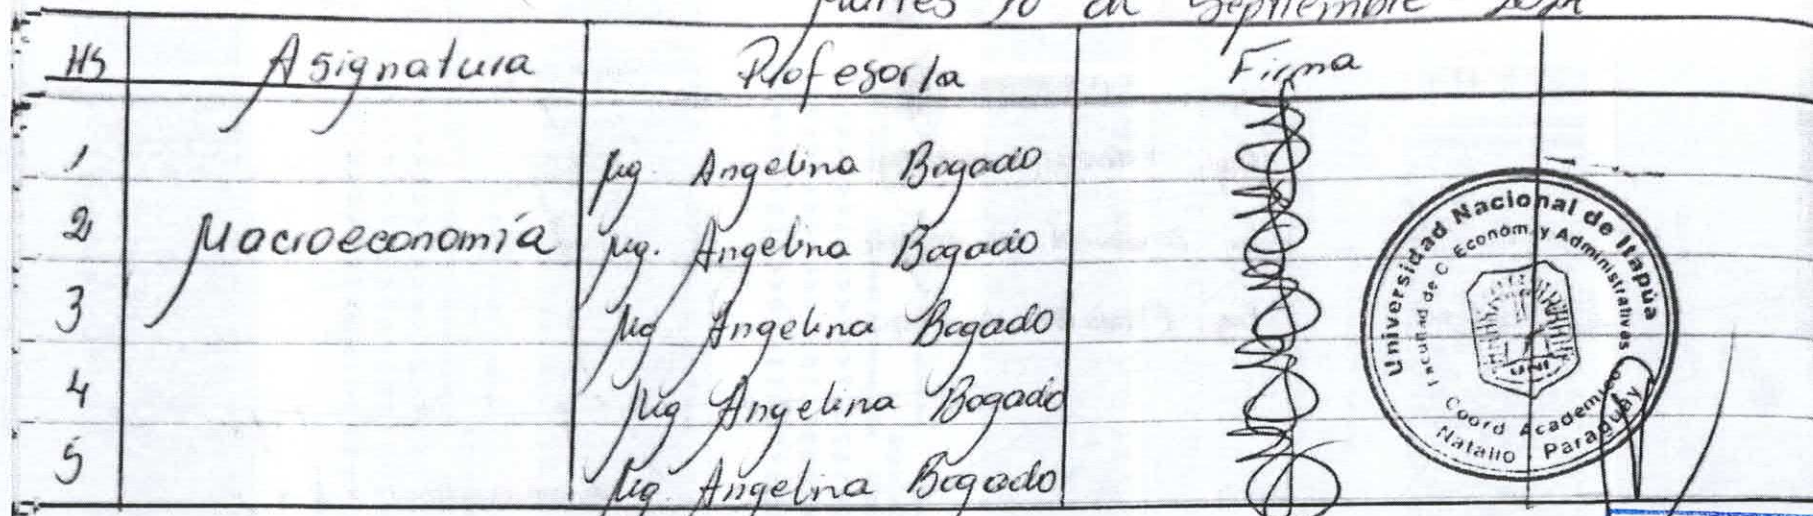 Martes 10 de Septiembre
HS Asignatura Profesor/a Firma
1 Mg. Angelina Bogado
2 Macroeconomía Mg. Angelina Bogado
3 Mg Angelina Bogado
4 Mg Angelina Bogado
5 Mg. Angelina Bogado
Universidad Nacional de Itapúa
Facultad de C Económ. y Administrativas
UNI
Coord Academica
Natalio - Paraguay